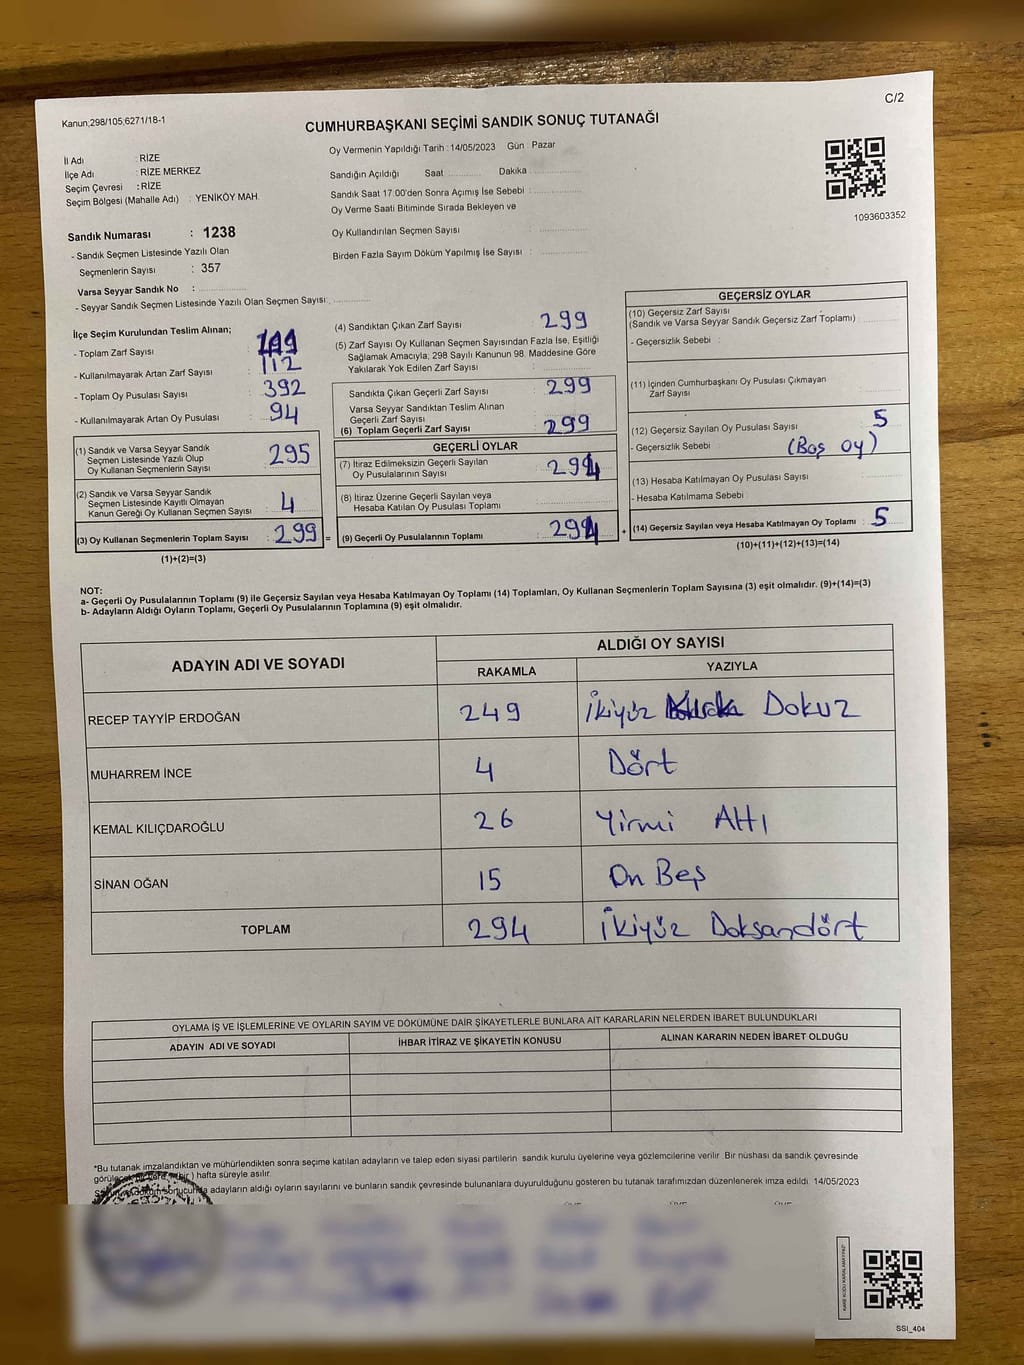 C/2
Kanun;298/105;6271/18-1
CUMHURBAŞKANI SEÇİMİ SANDIK SONUÇ TUTANAĞI
İl Adı : RİZE
İlçe Adı : RİZE MERKEZ
Seçim Çevresi : RİZE
Seçim Bölgesi (Mahalle Adı) : YENİKÖY MAH.
Oy Vermenin Yapıldığı Tarih : 14/05/2023 Gün : Pazar
Sandığın Açıldığı Saat Dakika
Sandık Saat 17.00'den Sonra Açımış İse Sebebi :
Oy Verme Saati Bitiminde Sırada Bekleyen ve
Oy Kullandırılan Seçmen Sayısı :
Birden Fazla Sayım Döküm Yapılmış İse Sayısı :
1093603352
Sandık Numarası : 1238
- Sandık Seçmen Listesinde Yazılı Olan
Seçmenlerin Sayısı : 357
Varsa Seyyar Sandık No :
- Seyyar Sandık Seçmen Listesinde Yazılı Olan Seçmen Sayısı :
İlçe Seçim Kurulundan Teslim Alınan;
- Toplam Zarf Sayısı :
- Kullanılmayarak Artan Zarf Sayısı : 112
- Toplam Oy Pusulası Sayısı : 392
- Kullanılmayarak Artan Oy Pusulası : 94
(1) Sandık ve Varsa Seyyar Sandık
Seçmen Listesinde Yazılı Olup
Oy Kullanan Seçmenlerin Sayısı : 295
(2) Sandık ve Varsa Seyyar Sandık
Seçmen Listesinde Kayıtlı Olmayan
Kanun Gereği Oy Kullanan Seçmen Sayısı : 4
(3) Oy Kullanan Seçmenlerin Toplam Sayısı : 299 =
(1)+(2)=(3)
(4) Sandıktan Çıkan Zarf Sayısı : 299
(5) Zarf Sayısı Oy Kullanan Seçmen Sayısından Fazla İse, Eşitliği
Sağlamak Amacıyla; 298 Sayılı Kanunun 98. Maddesine Göre
Yakılarak Yok Edilen Zarf Sayısı :
Sandıkta Çıkan Geçerli Zarf Sayısı : 299
Varsa Seyyar Sandıktan Teslim Alınan
Geçerli Zarf Sayısı :
(6) Toplam Geçerli Zarf Sayısı : 299
GEÇERLİ OYLAR
(7) İtiraz Edilmeksizin Geçerli Sayılan
Oy Pusulalarının Sayısı : 294
(8) İtiraz Üzerine Geçerli Sayılan veya
Hesaba Katılan Oy Pusulası Toplamı :
(9) Geçerli Oy Pusulalarının Toplamı : 294 +
GEÇERSİZ OYLAR
(10) Geçersiz Zarf Sayısı
(Sandık ve Varsa Seyyar Sandık Geçersiz Zarf Toplamı) :
- Geçersizlik Sebebi :
(11) İçinden Cumhurbaşkanı Oy Pusulası Çıkmayan
Zarf Sayısı :
(12) Geçersiz Sayılan Oy Pusulası Sayısı : 5
- Geçersizlik Sebebi : (Boş oy)
(13) Hesaba Katılmayan Oy Pusulası Sayısı :
- Hesaba Katılmama Sebebi :
(14) Geçersiz Sayılan veya Hesaba Katılmayan Oy Toplamı : 5
(10)+(11)+(12)+(13)=(14)
NOT:
a- Geçerli Oy Pusulalarının Toplamı (9) ile Geçersiz Sayılan veya Hesaba Katılmayan Oy Toplamı (14) Toplamları, Oy Kullanan Seçmenlerin Toplam Sayısına (3) eşit olmalıdır. (9)+(14)=(3)
b- Adayların Aldığı Oyların Toplamı, Geçerli Oy Pusulalarının Toplamına (9) eşit olmalıdır.
ADAYIN ADI VE SOYADI ALDIĞI OY SAYISI
RAKAMLA YAZIYLA
RECEP TAYYİP ERDOĞAN 249 İkiyüz Kırk Dokuz
MUHARREM İNCE 4 Dört
KEMAL KILIÇDAROĞLU 26 Yirmi Altı
SİNAN OĞAN 15 On Beş
TOPLAM 294 İkiyüz Doksandört
OYLAMA İŞ VE İŞLEMLERİNE VE OYLARIN SAYIM VE DÖKÜMÜNE DAİR ŞİKAYETLERLE BUNLARA AİT KARARLARIN NELERDEN İBARET BULUNDUKLARI
ADAYIN ADI VE SOYADI İHBAR İTİRAZ VE ŞİKAYETİN KONUSU ALINAN KARARIN NEDEN İBARET OLDUĞU
*Bu tutanak imzalandıktan ve mühürlendikten sonra seçime katılan adayların ve talep eden siyasi partilerin sandık kurulu üyelerine veya gözlemcilerine verilir. Bir nüshası da sandık çevresinde
(bir) hafta süreyle asılır.
adayların aldığı oyların sayılarını ve bunların sandık çevresinde bulunanlara duyurulduğunu gösteren bu tutanak tarafımızdan düzenlenerek imza edildi. 14/05/2023
SSI_404